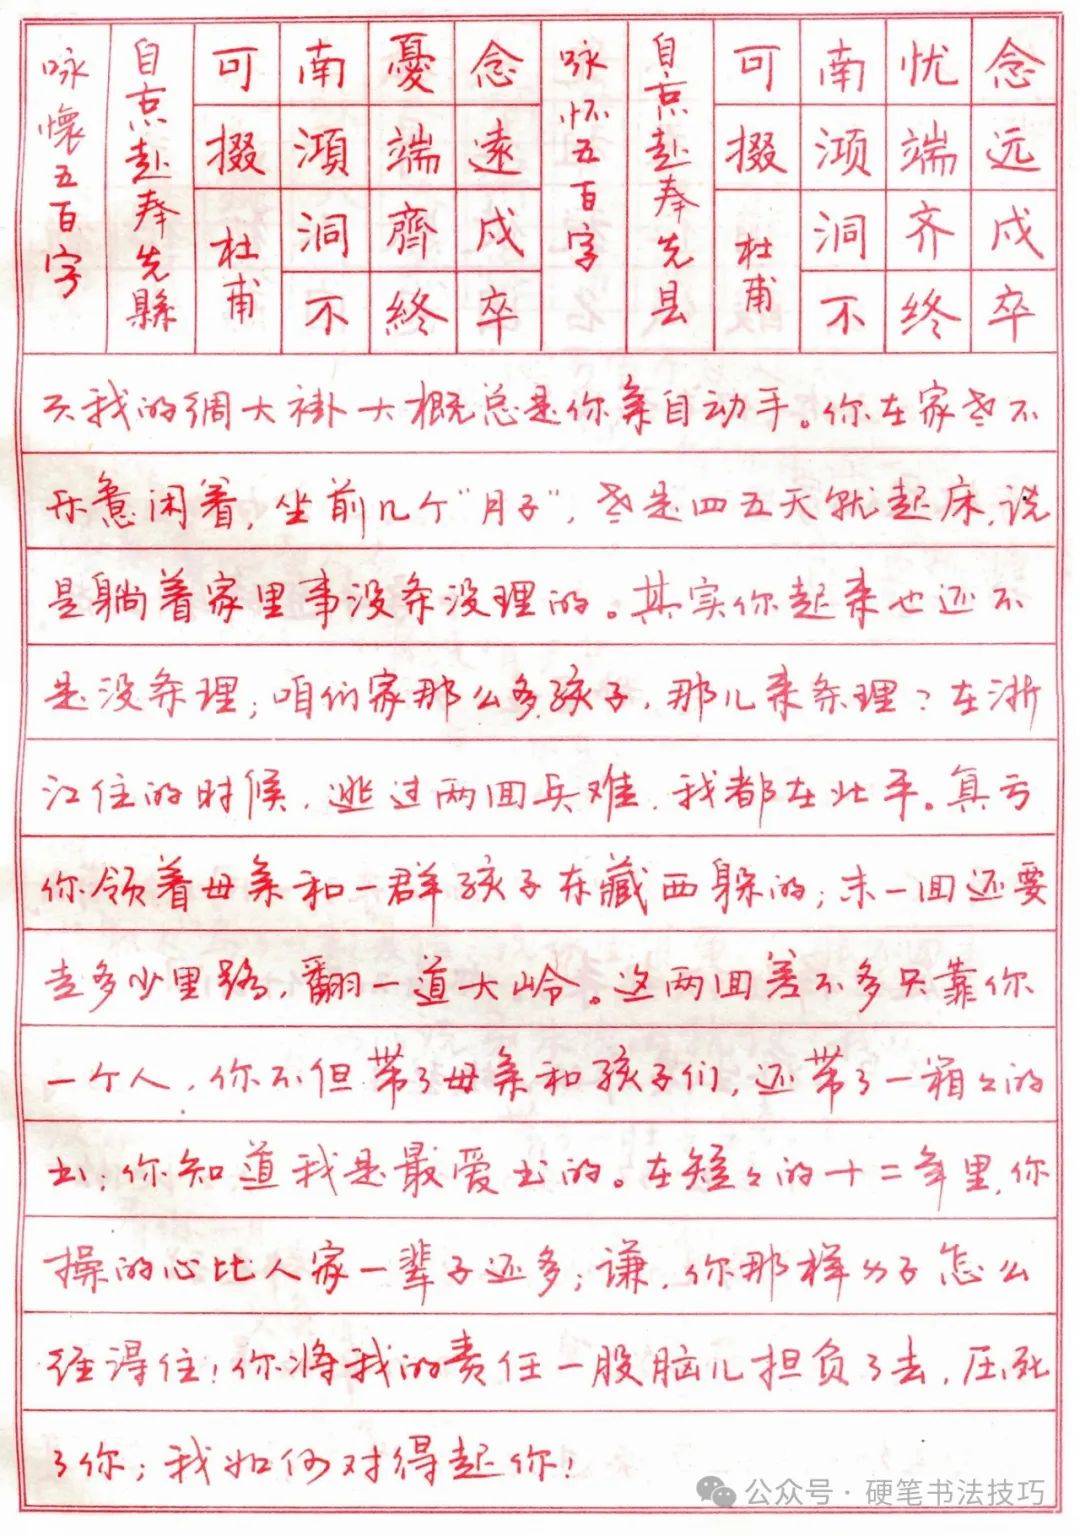 念远戍卒
忧端齐终
南澒洞不
可掇
杜甫
自京赴奉先县
咏怀五百字
念遠戍卒
憂端齊終
南澒洞不
可掇
杜甫
自京赴奉先縣
咏懷五百字
天我的绸大褂大概总是你亲自动手。你在家老不
乐意闲着,坐前几个“月子”,老是四五天就起床,说
是躺着家里事没条没理的。其实你起来也还不
是没条理;咱们家那么多孩子,那儿来条理?在浙
江住的时候,逃过两回兵难,我都在北平。真亏
你领着母亲和一群孩子东藏西躲的;末一回还要
走多少里路,翻一道大岭。这两回差不多只靠你
一个人,你不但带了母亲和孩子们,还带了一箱々的
书;你知道我是最爱书的。在短々的十二年里,你
操的心比人家一辈子还多;谦,你那样身子怎么
经得住!你将我的责任一股脑儿担负了去,压死
了你;我如何对得起你!
公众号·硬笔书法技巧